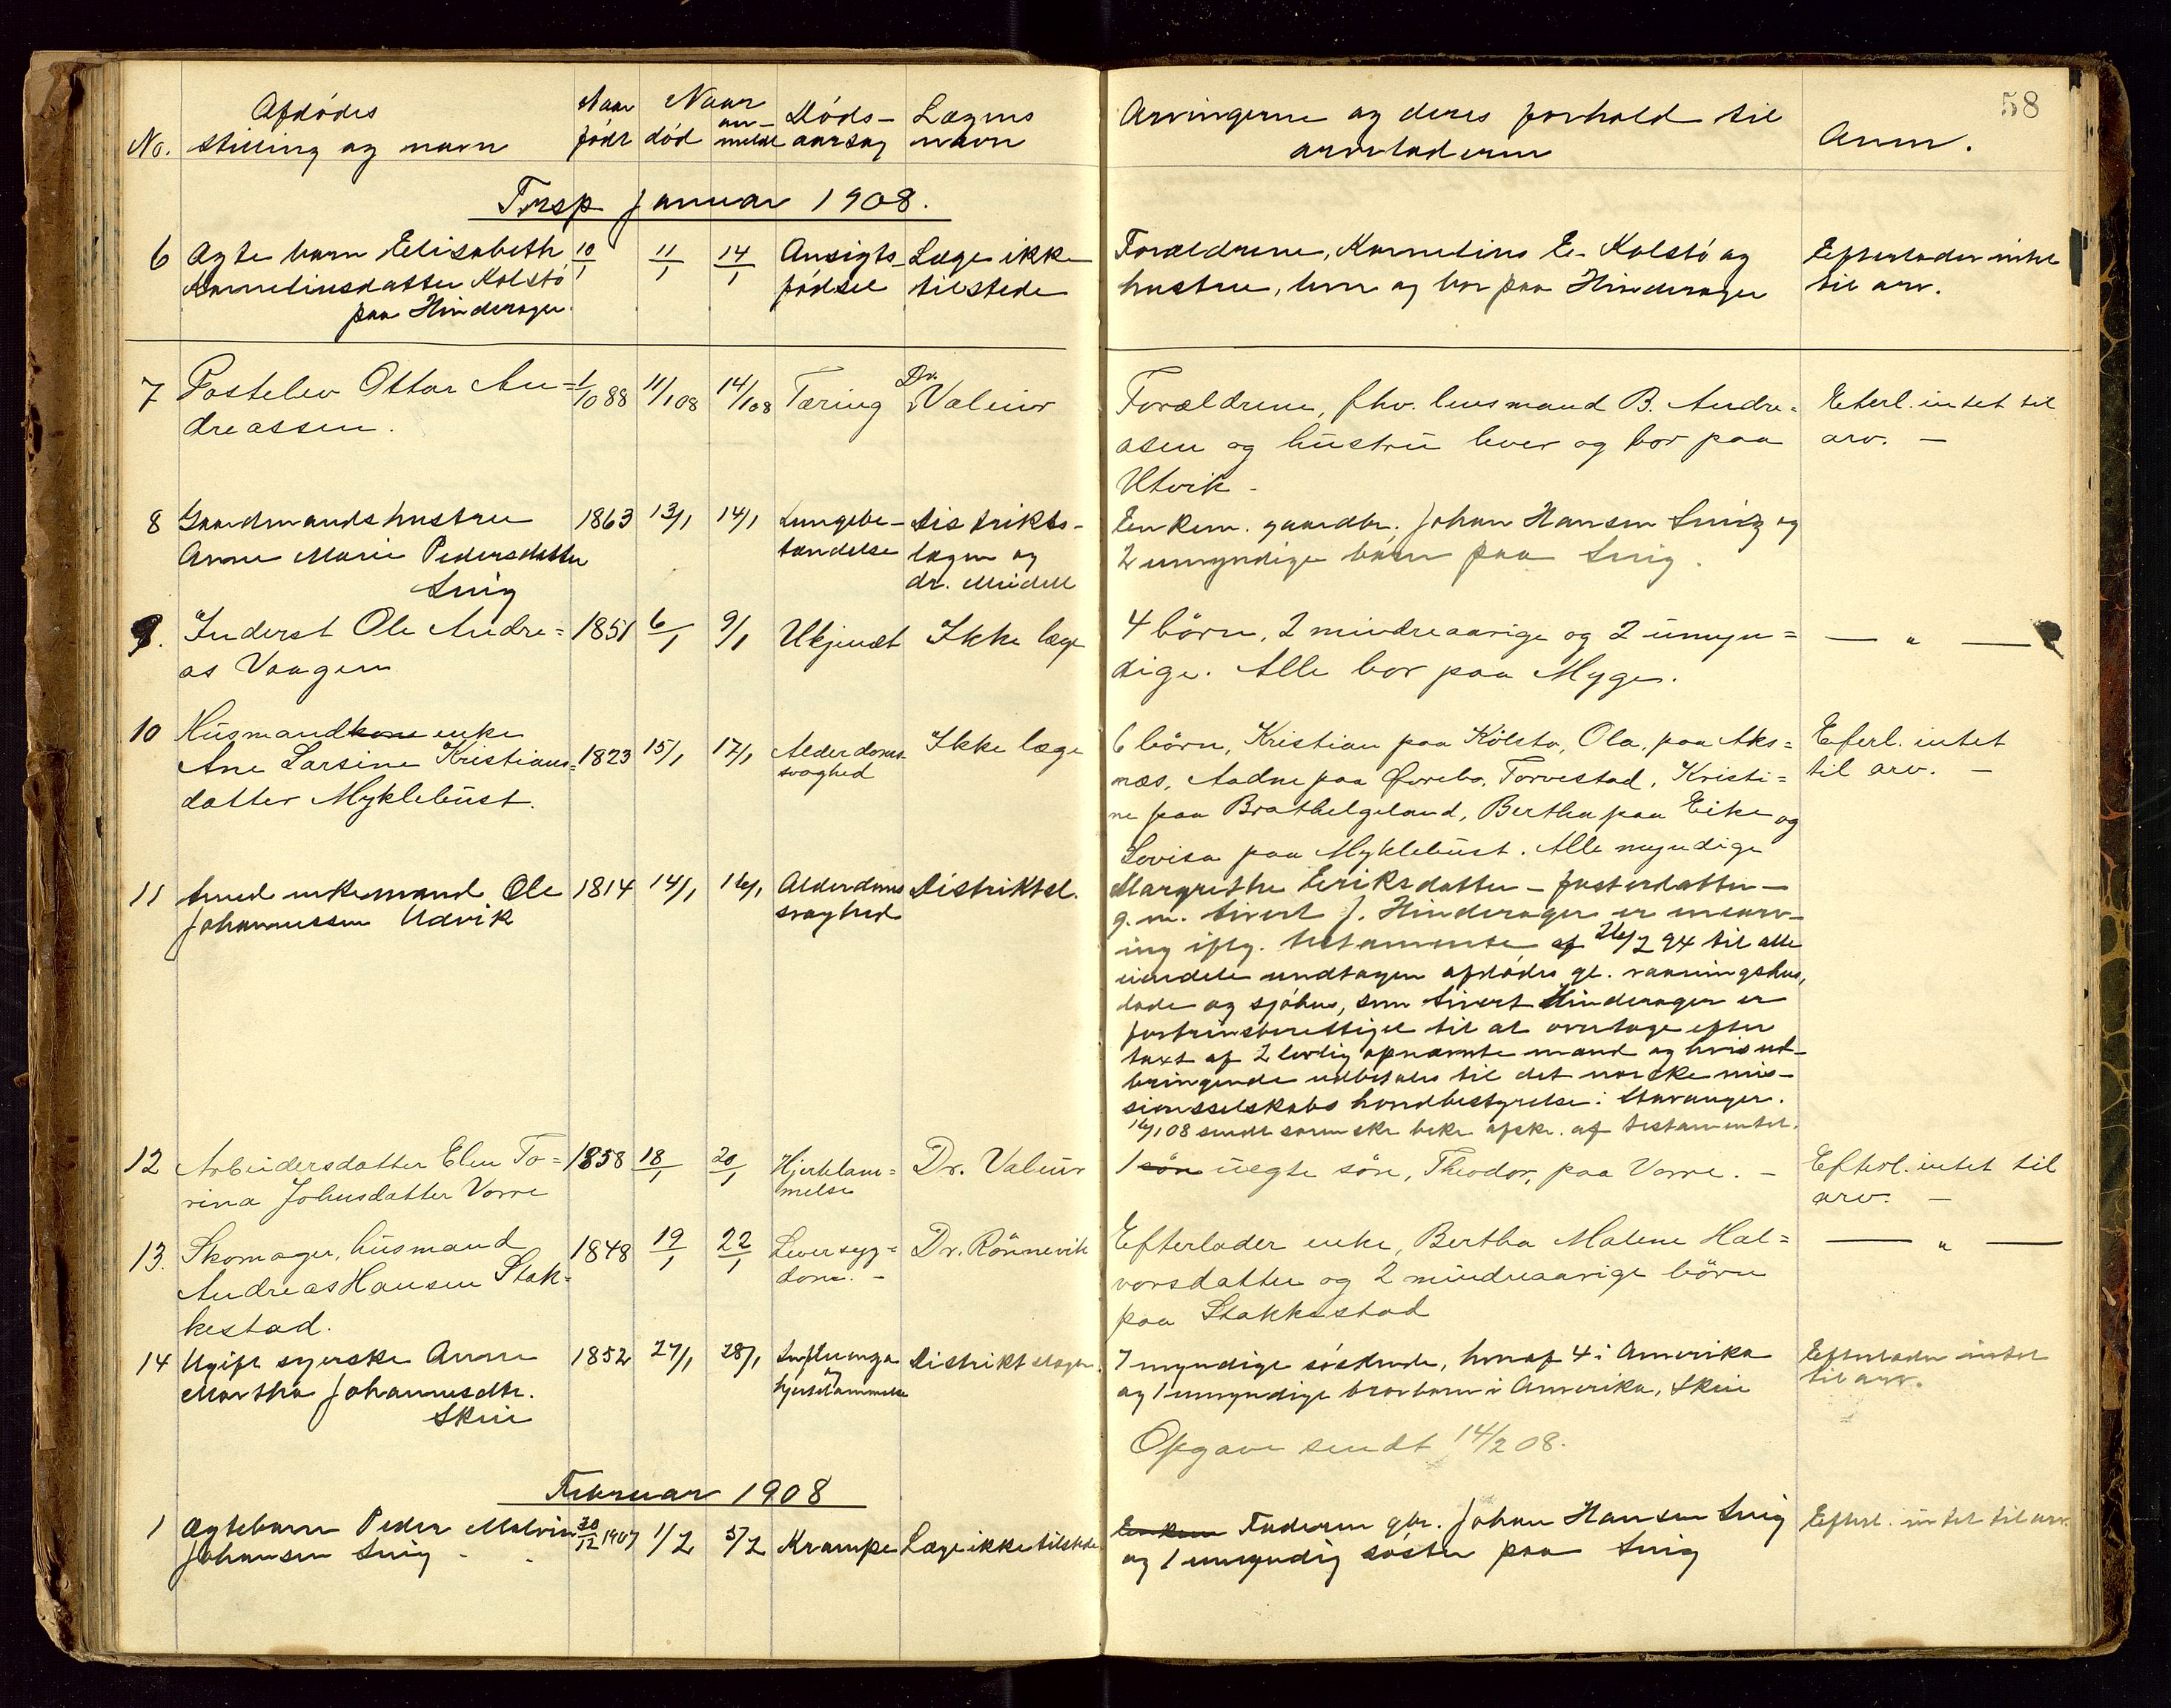 58
No. Afdødes stilling og navn Naar født Naar død anmeldt Dødsaarsag Lægens navn Arvingerne og deres forhold til arveladeren Anm.
Januar 1908.
6 Ægte barn Elisabeth 10/1 11/1 14/1 Ansigts- Læge ikke
Kornelinsdatter Kolstø fødsel tilstede
paa Hinderager.
Forældrene, Kornelius E. Kolstø og
hustru, lever og bor paa Hinderager
Efterlader intet
til arv.
7 Postelev Ottar An= 1/10 88 11/1 08 14/1 08 Tæring Dr. Valeur
dreassen.
Forældrene, fhv. lensmand B. Andre=
asen og hustru lever og bor paa
Utvik -
Eterl. intet til
arv. -
8 Gaardmandshustru 1863 13/1 14/1 Lungebe- Distrikts-
Anne Marie Pedersdatter tændelse lægen og
Snig dr. Meidell
Enkem. gaardbr. Johan Hansen Snig og
2 umyndige børn paa Snig.
9. Inderst Ole Andre= 1851 6/1 9/1 Ukjendt Ikke læge
as Vaagen
4 børn, 2 mindreaarige og 2 umyn=
dige. Alle bor paa Myge.
— „ —
10 Husmandkone enke
Ane Larsine Kristians= 1823 15/1 17/1 Alderdoms- Ikke læge
datter Myklebust. svaghed
6 børn, Kristian paa Kolstø, Ola, paa Aks=
næs, Aadne paa Øvrebø, Torvestad, Kristi=
ne paa Brathelgeland, Bertha paa Eike og
Lovisa paa Myklebust. Alle myndige
Eferl. intet
til arv. -
11 Smed enkemand Ole 1814 14/1 16/1 Alderdoms Distriktsl.
Johannessen Udvik svaghed
Margrethe Eriksdatter - fosterdatter -
g. m. Sivert J. Hinderager er enearv-
ing iflg. testamente af 26/2 94 til alle
eiendele undtagen afdødes gl. vaaningshus,
lade og sjøhus, som Sivert Hinderager er
fortrinsberettiget til at overtage efter
taxt af 2 lovlig opnævnte mænd og hvis ud-
bringende udbetales til det norske mis-
sionsselskabs hovedbestyrelse i Stavanger.
16/1 08 sendt sorenskr. bekr. afskr. af testamentet.
12 Arbeidersdatter Elen To= 1858 18/1 20/1 Hjertelam= Dr. Valeur
rina Johnsdatter Vorre melse
1 søn uegte søn, Theodor, paa Vorre. -
Efterl. intet til
arv. -
13. Skomager, husmand 1848 19/1 22/1 Leversyg= Dr. Rönnevik
Andreas Hansen Stak= dom. -
kestad.
Efterlader enke, Bertha Malene Hal=
vorsdatter og 2 mindreaarige børn
paa Stakkestad
— „ —
14 Ugift syerske Anne 1852 27/1 28/1 Influenza Distriktslægen.
Martha Johannesdtr. og hjertelammelse
Skeie
7 myndige søskende, hvoraf 4 i Amerika
og 1 umyndige brorbarn i Amerika, Skeie
Efterlader intet
til arv.
Opgave sendt 14/2 08.
Februar 1908
1 Ægtebarn Peder Malvin 30/12 1907 1/2 5/2 Krampe Læge ikke tilstede
Johansen Snig
Enkem Faderen gbr. Johan Hansen Snig
og 1 umyndig søster paa Snig
Efterl. intet til arv.